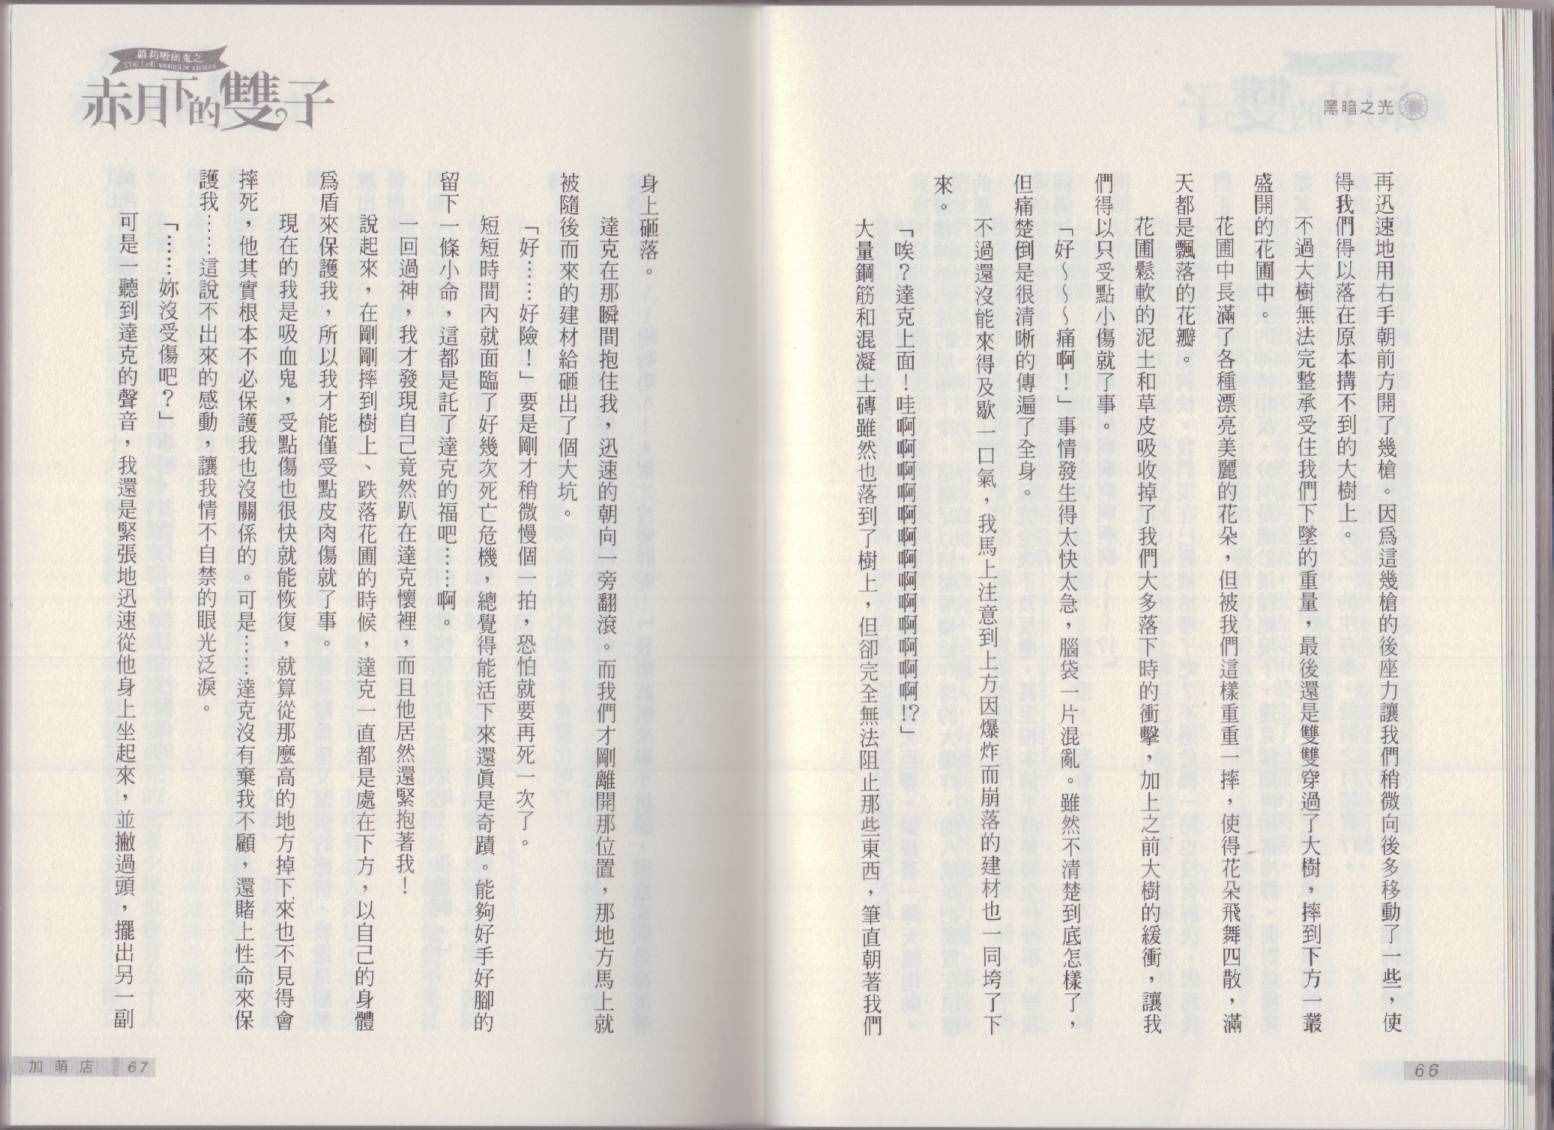 黑暗之光
再迅速地用右手朝前方開了幾槍。因為這幾槍的後座力讓我們稍微向後多移動了一些，使
得我們得以落在原本搆不到的大樹上。
不過大樹無法完整承受住我們下墜的重量，最後還是雙雙穿過了大樹，摔到下方一叢
盛開的花圃中。
花圃中長滿了各種漂亮美麗的花朵，但被我們這樣重重一摔，使得花朵飛舞四散，滿
天都是飄落的花瓣。
花圃鬆軟的泥土和草皮吸收掉了我們大多落下時的衝擊，加上之前大樹的緩衝，讓我
們得以只受點小傷就了事。
「好～～～痛啊！」事情發生得太快太急，腦袋一片混亂。雖然不清楚到底怎樣了，
但痛楚倒是很清晰的傳遍了全身。
不過還沒能來得及歇一口氣，我馬上注意到上方因爆炸而崩落的建材也一同垮了下
來。
「唉？達克上面！哇啊啊啊啊啊啊啊啊啊啊啊啊!?」
大量鋼筋和混凝土磚雖然也落到了樹上，但卻完全無法阻止那些東西，筆直朝著我們
66
赤月下的雙子
身上砸落。
達克在那瞬間抱住我，迅速的朝向一旁翻滾。而我們才剛離開那位置，那地方馬上就
被隨後而來的建材給砸出了個大坑。
「好……好險！」要是剛才稍微慢個一拍，恐怕就要再死一次了。
短短時間內就面臨了好幾次死亡危機，總覺得能活下來還真是奇蹟。能夠好手好腳的
留下一條小命，這都是託了達克的福吧……啊。
一回過神，我才發現自己竟然趴在達克懷裡，而且他居然還緊抱著我！
說起來，在剛剛摔到樹上、跌落花圃的時候，達克一直都是處在下方，以自己的身體
為盾來保護我，所以我才能僅受點皮肉傷就了事。
現在的我是吸血鬼，受點傷也很快就能恢復，就算從那麼高的地方掉下來也不見得會
摔死，他其實根本不必保護我也沒關係的。可是……達克沒有棄我不顧，還賭上性命來保
護我……這說不出來的感動，讓我情不自禁的眼光泛淚。
「……妳沒受傷吧？」
可是一聽到達克的聲音，我還是緊張地迅速從他身上坐起來，並撇過頭，擺出另一副
加萌店 67